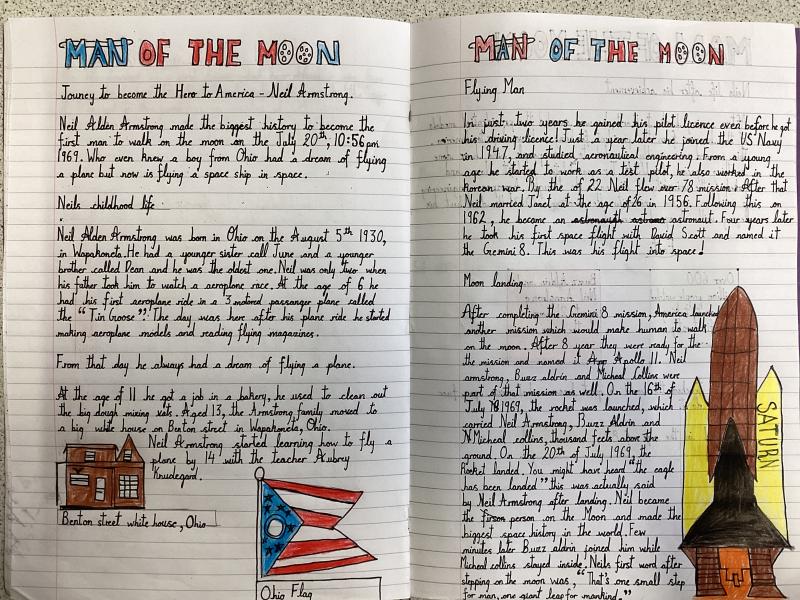 MAN OF THE MOON
Jouney to become the Hero to America - Neil Armstrong.
Neil Alden Armstrong made the biggest history to become the
first man to walk on the moon on the July 20th, 10:56pm
1969. Who even knew a boy from Ohio had a dream of flying
a plane but now is flying a space ship in space.
Neils childhood life
Neil Alden Armstrong was born in Ohio on the August 5th 1930,
in Wapakoneta. He had a younger sister call June and a younger
brother called Dean and he was the oldest one. Neil was only two when
his father took him to watch a aeroplane race. At the age of 6 he
had his first aeroplane ride in a 3 motored passanger plane called
the "Tin Goose". The day was here after his plane ride he started
making aeroplane models and reading flying magazines.
From that day he always had a dream of flying a plane.
At the age of 11 he got a job in a bakery, he used to clean out
the big dough mixing vats. Aged 13, the Armstrong family moved to
a big white house on Benton street in Wapakoneta, Ohio.
Neil Armstrong started learning how to fly a
plane by 14 with the teacher Aubrey
Knudegard.
Benton street white house, Ohio
Ohio Flag
MAN OF THE MOON
Flying Man
In just two years he gained his pilot licence even before he got
his driving licence! Just a year later he joined the US Navy
in 1947, and studied aeronautical engineering. From a young
age he started to work as a test pilot, he also worked in the
korean war. By the of 22 Neil flew over 78 mission. After that
Neil married Janet at the age of 26 in 1956. Following this on
1962, he became an astronaut. Four years later
he took his first space flight with David Scott and named it
the Gemini 8. This was his flight into space!
Moon landing
After completing the Gemini 8 mission, America launched
another mission which would make human to walk
on the moon. After 8 year they were ready for the
the mission and named it Apollo 11. Neil
armstrong, Buzz aldrin and Micheal Collins were
part of that mission as well. On the 16th of
July 1969, the rocket was launched, which
carried Neil Armstrong, Buzz Aldrin and
Micheal collins, thousand feets above the
ground. On the 20th of July 1969, the
Rocket landed. You might have heard "the eagle
has been landed" this was actually said
by Neil Armstrong after landing. Neil became
the person on the Moon and made the
biggest space history in the world. Few
minutes later Buzz aldrin joined him while
Micheal collins stayed inside. Neils first word after
stepping on the moon was, "That's one small step
for man, one giant leap for mankind."
SATURN